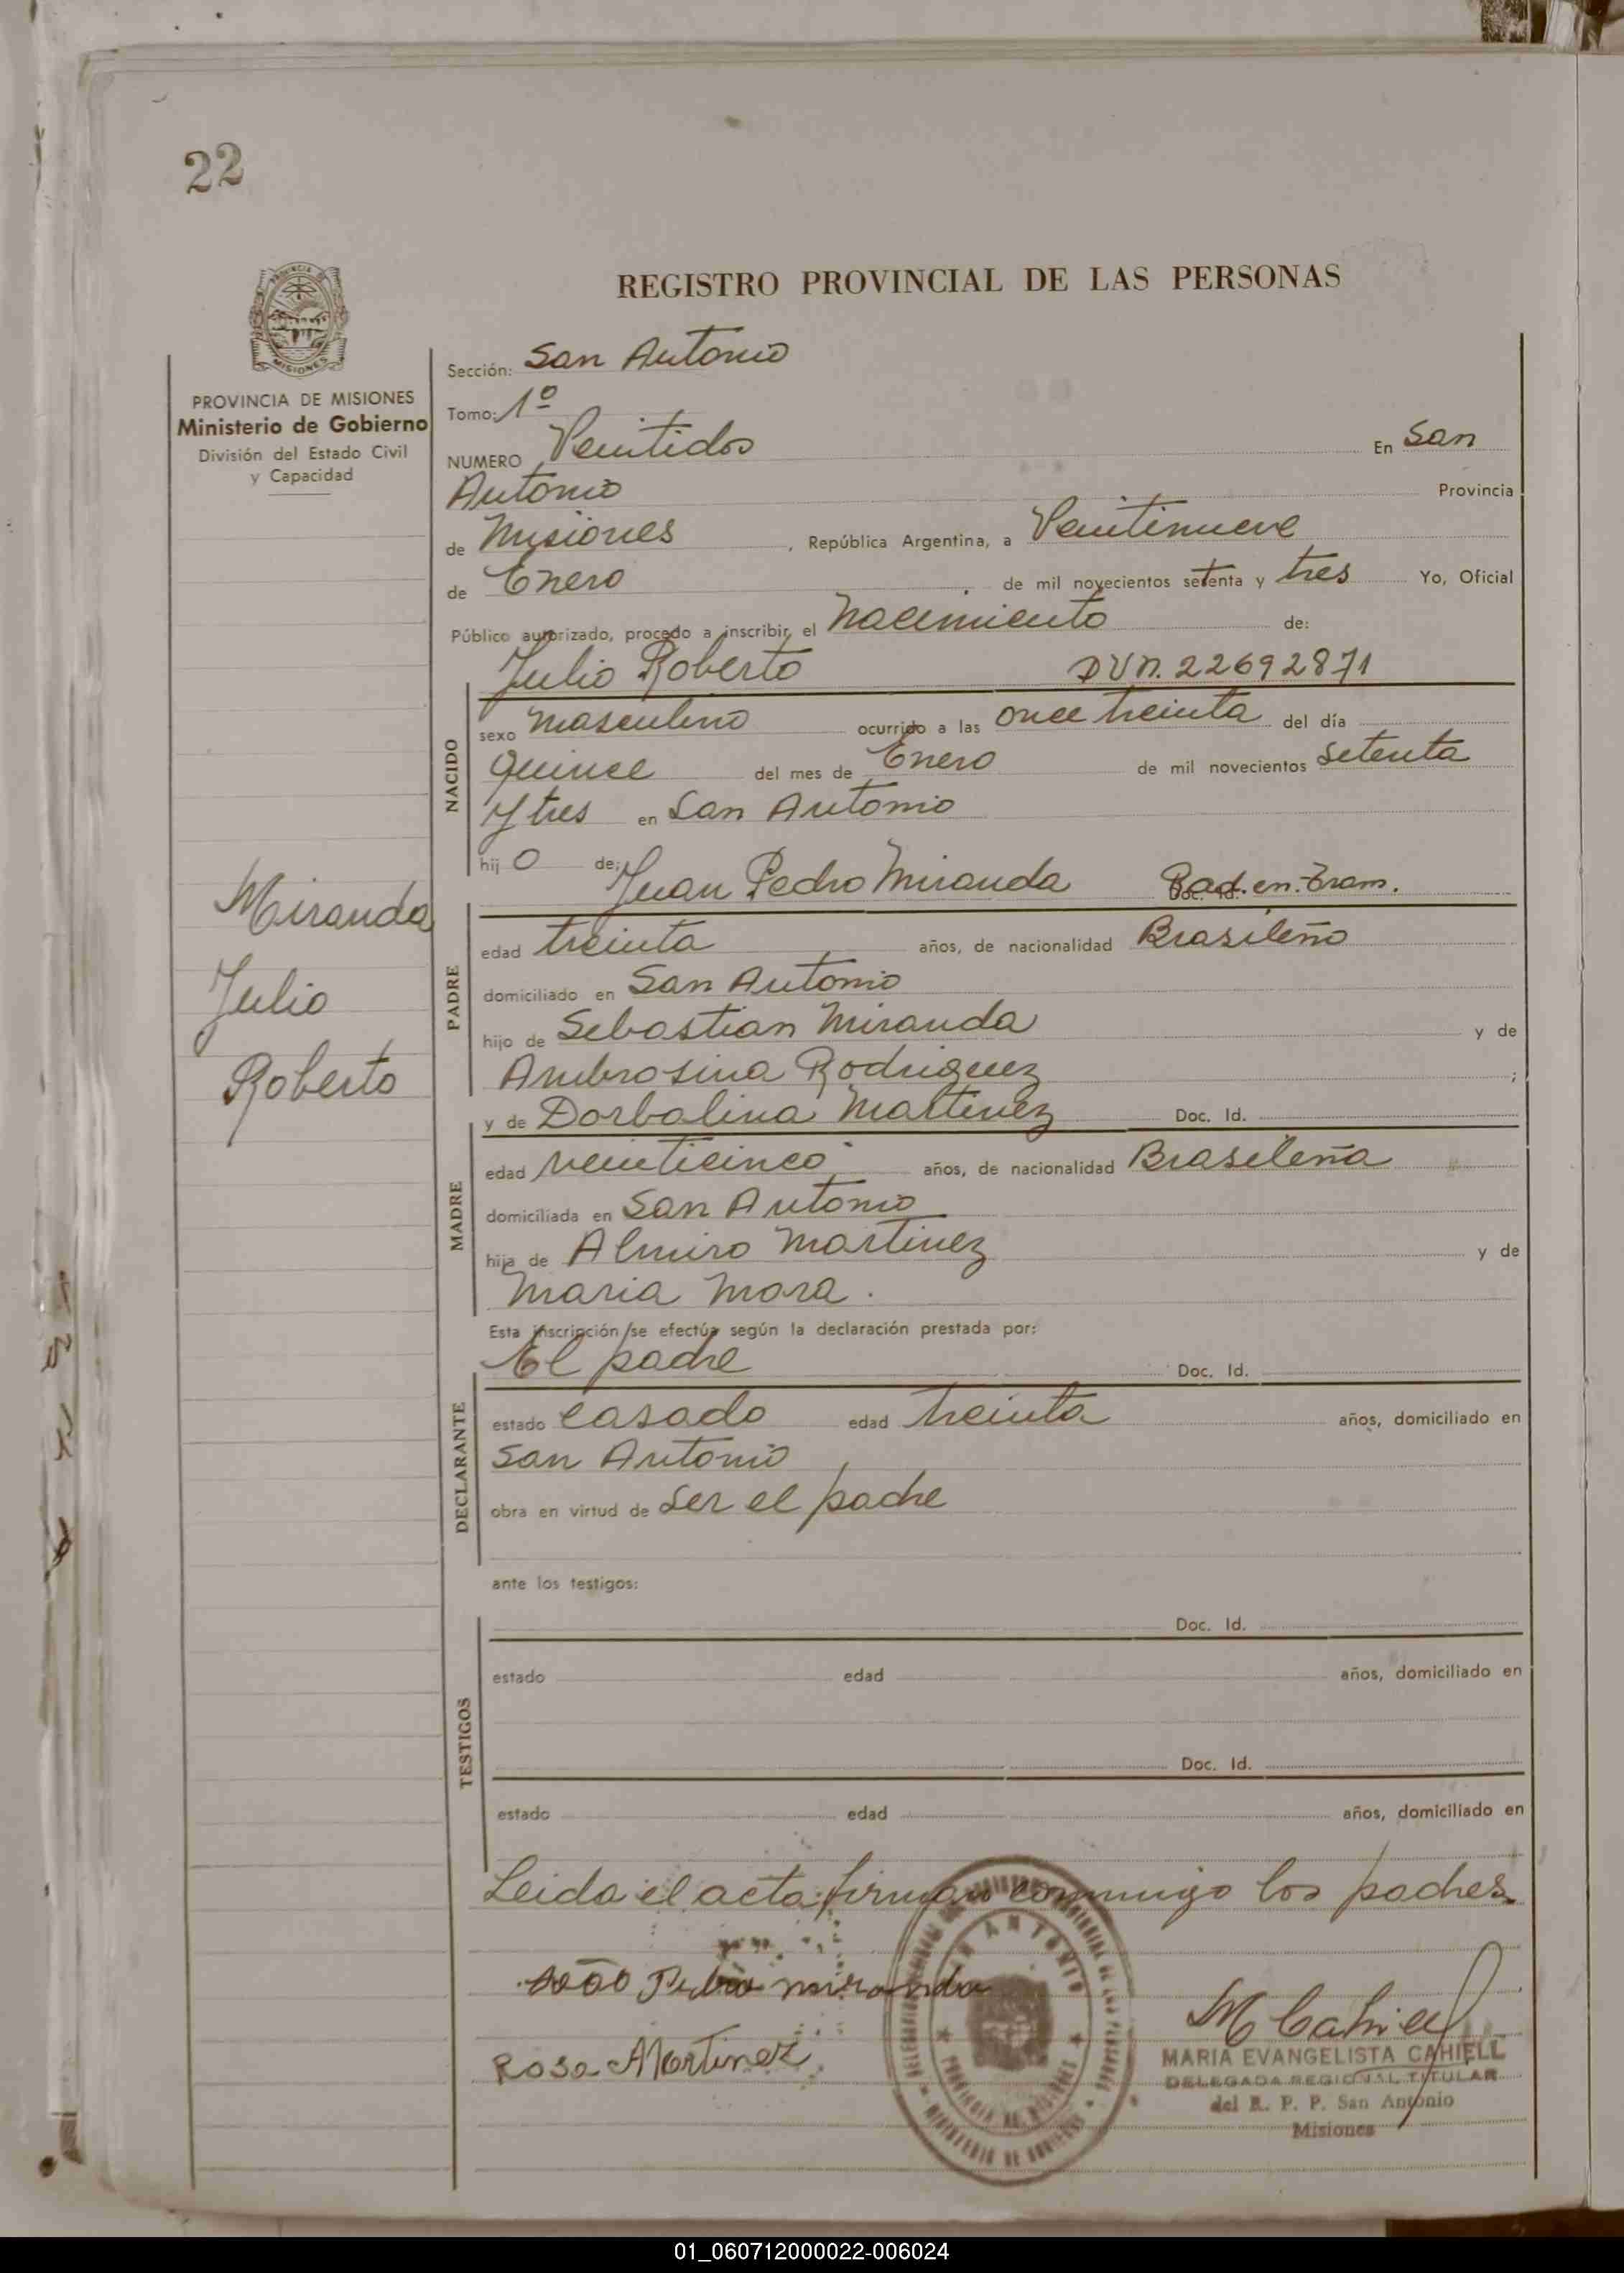 22
REGISTRO PROVINCIAL DE LAS PERSONAS
MISIONES
PROVINCIA DE MISIONES
Ministerio de Gobierno
División del Estado Civil
y Capacidad
Sección: San Antonio
Tomo: 1º
NUMERO Veintidos En San
Antonio Provincia
de Misiones, República Argentina, a Veintinueve
de Enero de mil novecientos setenta y tres Yo, Oficial
Público autorizado, procedo a inscribir el nacimiento de:
Julio Roberto DUN. 22692871
NACIDO
sexo masculino ocurrido a las once treinta del día
quince del mes de Enero de mil novecientos setenta
y tres en San Antonio
hijo de: Juan Pedro Miranda Doc. Id. Rad. en. Tram.
Miranda
Julio
Roberto
PADRE
edad treinta años, de nacionalidad Brasileño
domiciliado en San Antonio
hijo de Sebastian Miranda y de
Ambrosina Rodriguez ;
y de Dorbalina Martinez Doc. Id.
MADRE
edad veinticinco años, de nacionalidad Brasileña
domiciliada en San Antonio
hija de Almiro Martinez y de
Maria Mora.
Esta inscripción se efectúa según la declaración prestada por:
El padre Doc. Id.
DECLARANTE
estado casado edad treinta años, domiciliado en
San Antonio
obra en virtud de ser el padre
ante los testigos:
Doc. Id.
TESTIGOS
estado edad años, domiciliado en
Doc. Id.
estado edad años, domiciliado en
Leida el acta firman conmigo los padres.
João Pedro miranda
Rosa Martinez
SAN ANTONIO
PROVINCIA DE MISIONES
MINISTERIO DE GOBIERNO
M Cahiell
MARIA EVANGELISTA CAHIELL
DELEGADA REGIONAL TITULAR
del R. P. P. San Antonio
Misiones
01_060712000022-006024